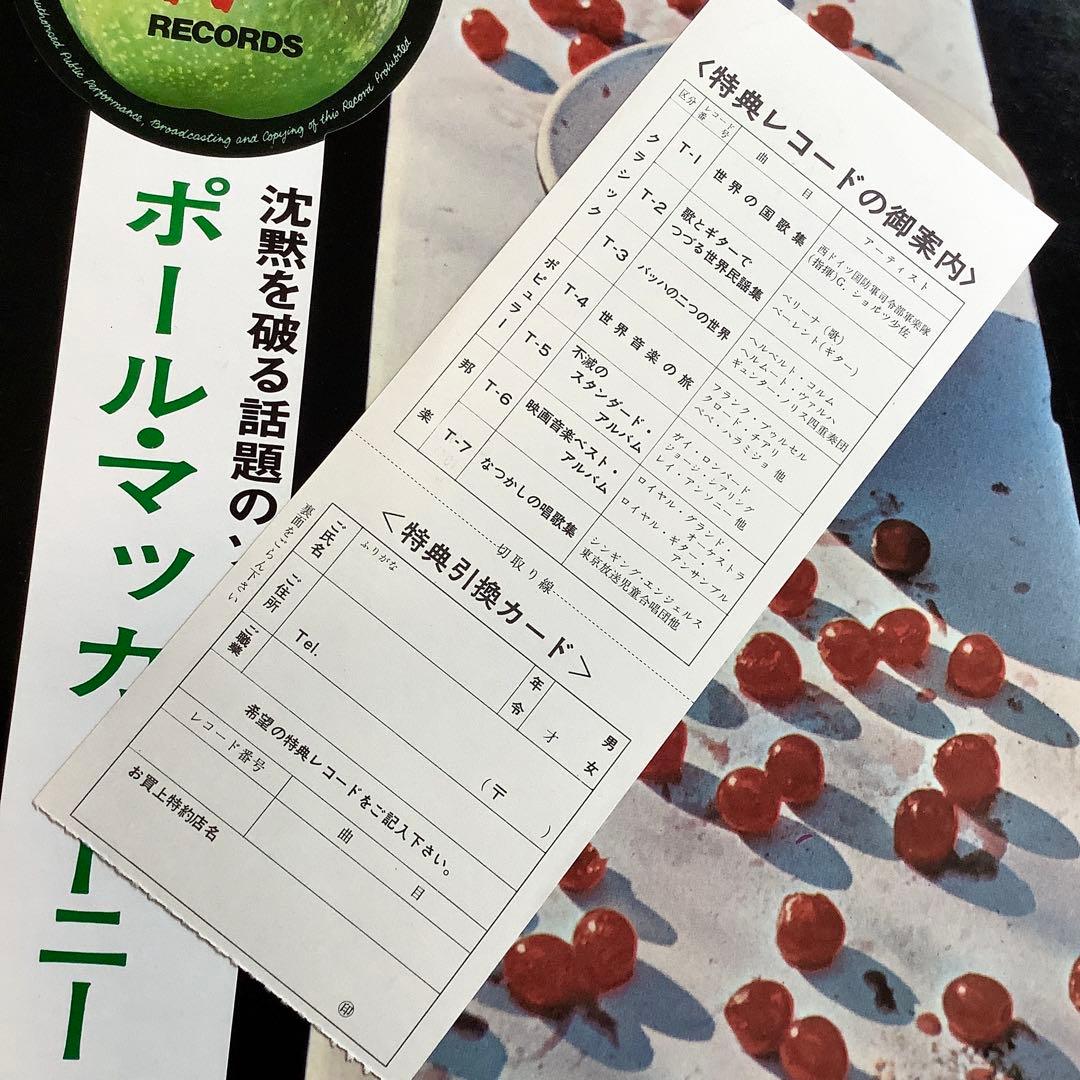 RECORDS
Authorized Public Performance, Broadcasting and Copying of this Record Prohibited
沈黙を破る話題の
ポール・マッカ
ーニー
〈特典レコードの御案内〉
区分
レコード番号
曲目
アーティスト
クラシック
T-1
世界の国歌集
西ドイツ国防軍司令部軍楽隊
(指揮)G.ショルツ少佐
T-2
歌とギターで
つづる世界民謡集
ベリーナ(歌)
ベーレント(ギター)
T-3
バッハの二つの世界
ヘルベルト・コルム
ヘルムート・ヴァルハ
ギュンター・ノリス四重奏団
ポピュラー
T-4
世界音楽の旅
フランク・プゥルセル
クロード・チアリ
ペペ・ハラミジョ 他
T-5
不滅の
スタンダード・
アルバム
ガイ・ロンバード
ジョージ・シアリング
レイ・アンソニー 他
T-6
映画音楽ベスト・
アルバム
ロイヤル・グランド・
オーケストラ
ロイヤル・ギター・アンサンブル
邦楽
T-7
なつかしの唱歌集
シンギング・エンジェルス
東京放送児童合唱団他
切取り線
〈特典引換カード〉
裏面をごらん下さい
ご氏名
ふりがな
年令
才
男
女
ご住所
Tel.
(〒
)
ご職業
希望の特典レコードをご記入下さい。
レコード番号
曲目
お買上特約店名
印